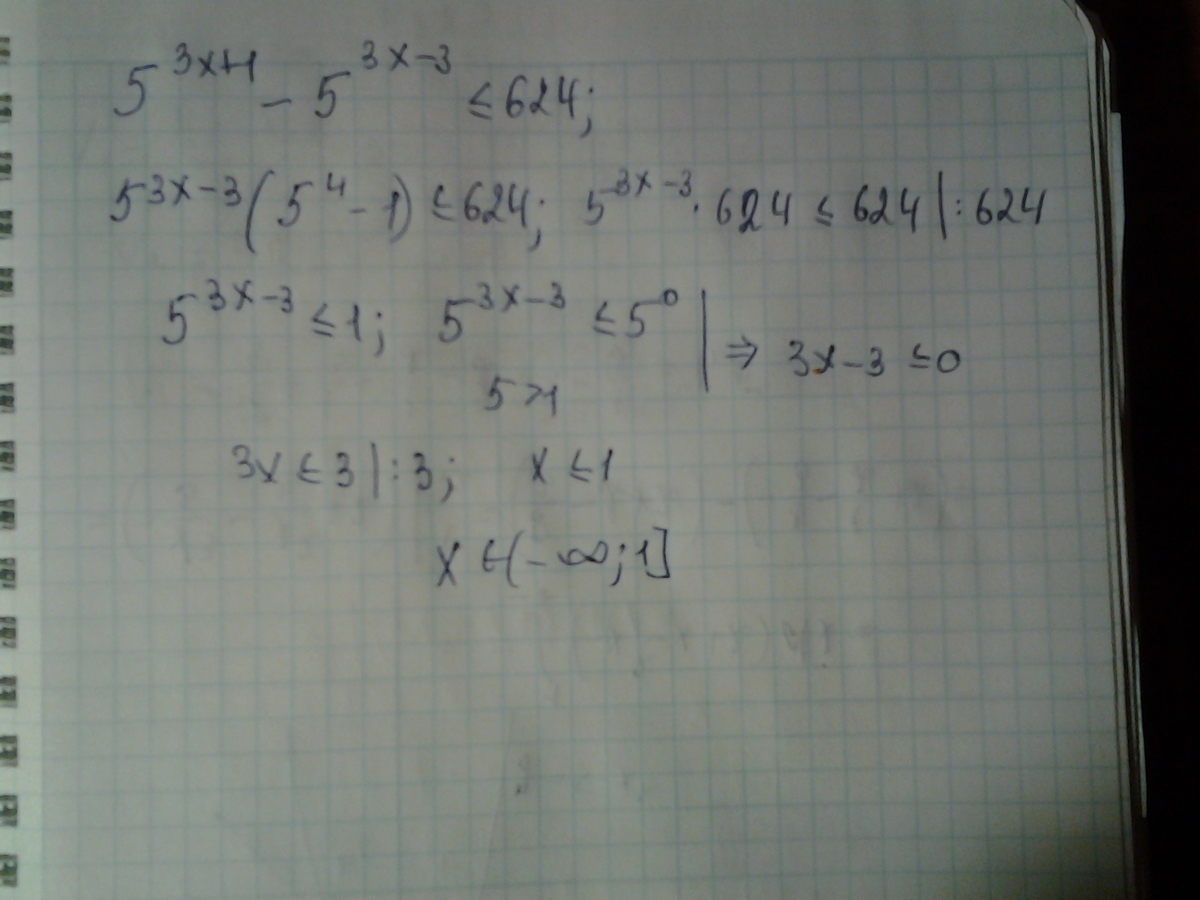 5^{3x+1} - 5^{3x-3} ≤ 624;
5^{3x-3}(5^4 - 1) ≤ 624; 5^{3x-3} · 624 ≤ 624 | : 624
5^{3x-3} ≤ 1; 5^{3x-3} ≤ 5^0 | ⇒ 3x - 3 ≤ 0
5 > 1
3x ≤ 3 | : 3; x ≤ 1
x ∈ (-∞; 1]